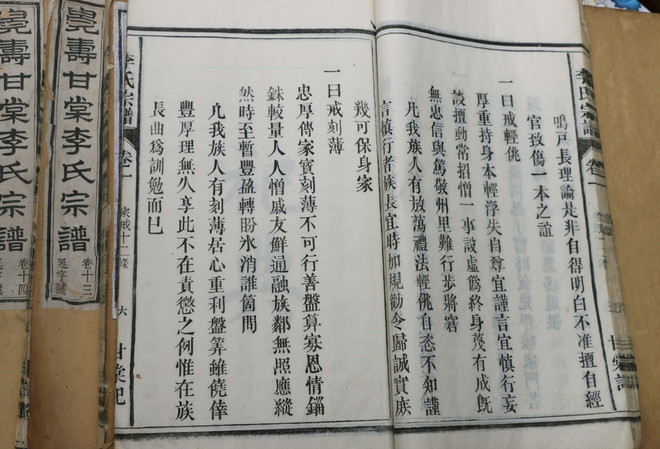 氏宗譜
鳴戸長理論是非自得明白不准擅自經
官致傷一本之誼
一曰戒輕佻
厚重持身本輕浮失自尊宜謹言宜慎行妄
談擅動常招憎一事設虛僞終身蔑有成旣
無忠信與篤敬州里難行步將窘
凡我族人有放蕩禮法輕佻自恣不知謹
言慎行者族長宜時加規勸令歸誠實族
幾可保身家
一曰戒刻薄
忠厚傳家寶刻薄不可行善盤算寡恩情錙
銖較量人人憎戚友鮮通融族鄰無照應縱
然時至暫豐盈轉盼氷消誰箇問
凡我族人有刻薄居心重利盤筭雖僥倖
豐厚理無久享此不在責懲之例惟在族
長曲爲訓勉而已
李氏宗譜 卷一 家戒十二條 六 甘棠記
壽甘棠李氏宗譜 卷十三
壽甘棠李氏宗譜 卷十四